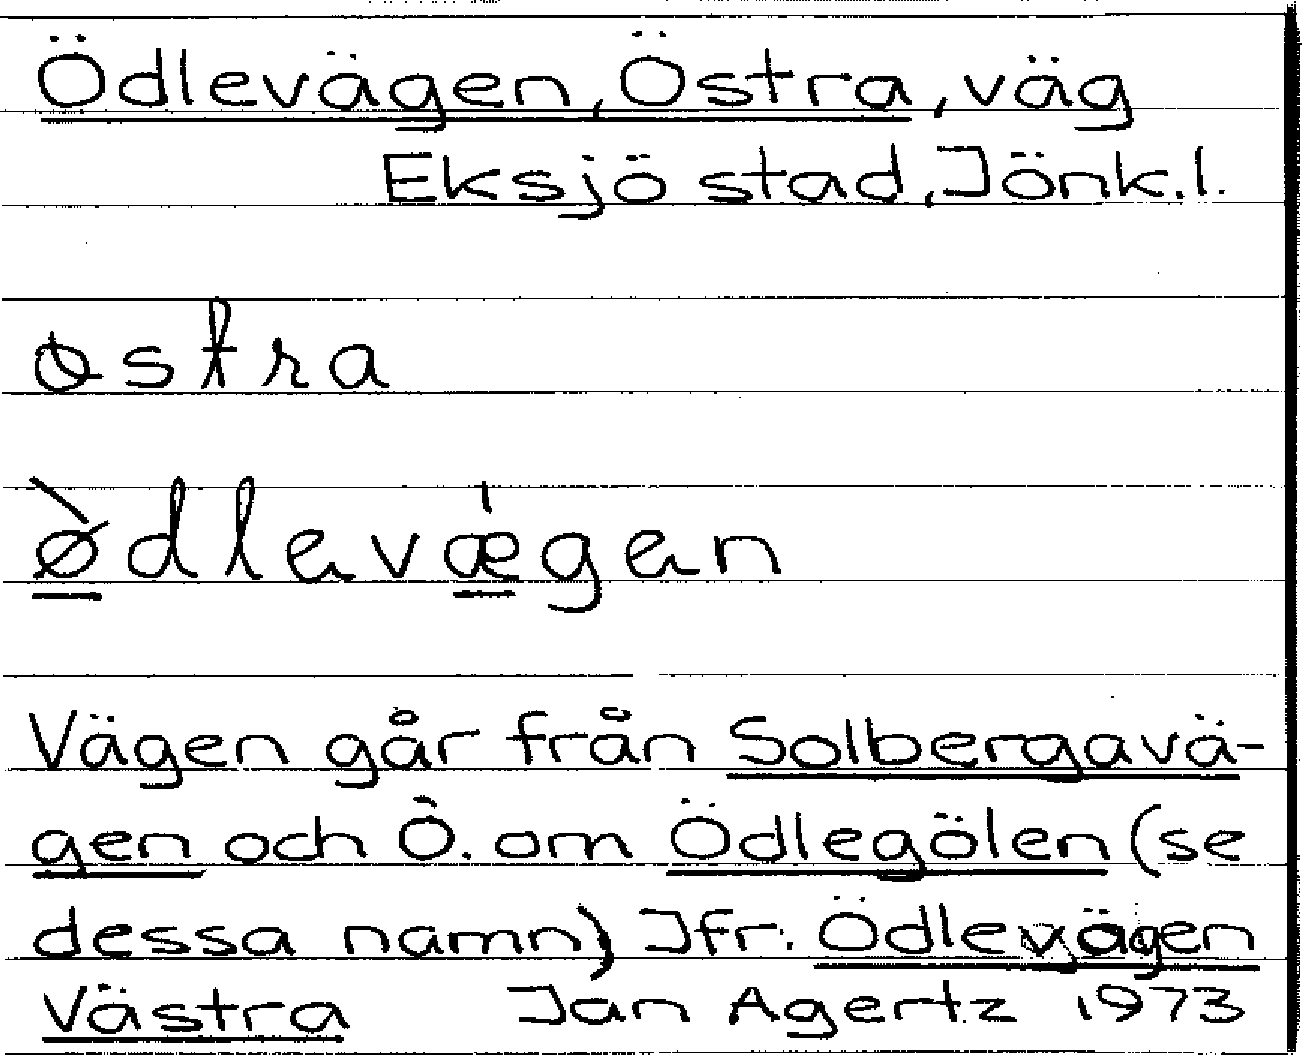 Ödlevägen, Östra, väg
Eksjö stad, Jönk.l.
østra
ø̀dlevǽgen
Vägen går från Solbergavä-
gen och Ö. om Ödlegölen (se
dessa namn) Jfr. Ödlevägen
Västra Jan Agertz 1973